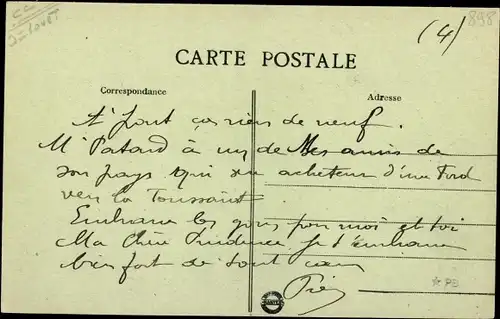 (4)
898
CARTE POSTALE
Correspondance
Adresse
A part ça rien de neuf.
Mr Patard a vu de Mes amis de
son pays qui acheteur d'une Ford
vers la Toussaint
Embrasse les pour moi et toi
Ma chère Prudence je t'embrasse
bien fort de tout cœur
PB